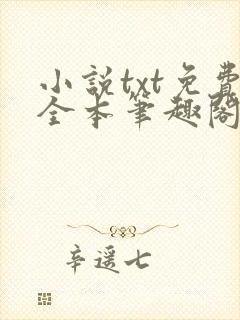 小説txt免費
全本筆趣閣
辛遥七